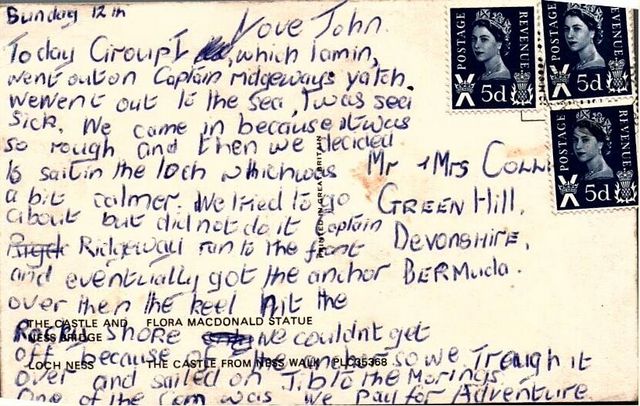 Sunday 12th
Love John.
Today Group 1, which I am in,
went out on Captain ridgeways yatch.
we went out to the sea, I was seei
Sick. We came in because it was
so rough and then we decided
to sail in the loch which was
a bit calmer. We tried to go
about but did not do it Captain
Ridgeway ran to the front
and eventually got the anchor
over then the keel hit the
Rocky shore we couldnt get
off because of the so we
over and sailed on to the Morings
One of the was We Paid for Adventure
POSTAGE REVENUE
5d
POSTAGE REVENUE
5d
POSTAGE REVENUE
5d
Mr + Mrs
GREEN Hill,
DEVONSHIRE,
BERMUda.
PRINTED IN GREAT BRITAIN
THE CASTLE AND NESS BRIDGE
FLORA MACDONALD STATUE
LOCH NESS
THE CASTLE FROM NESS WALK PLC35368